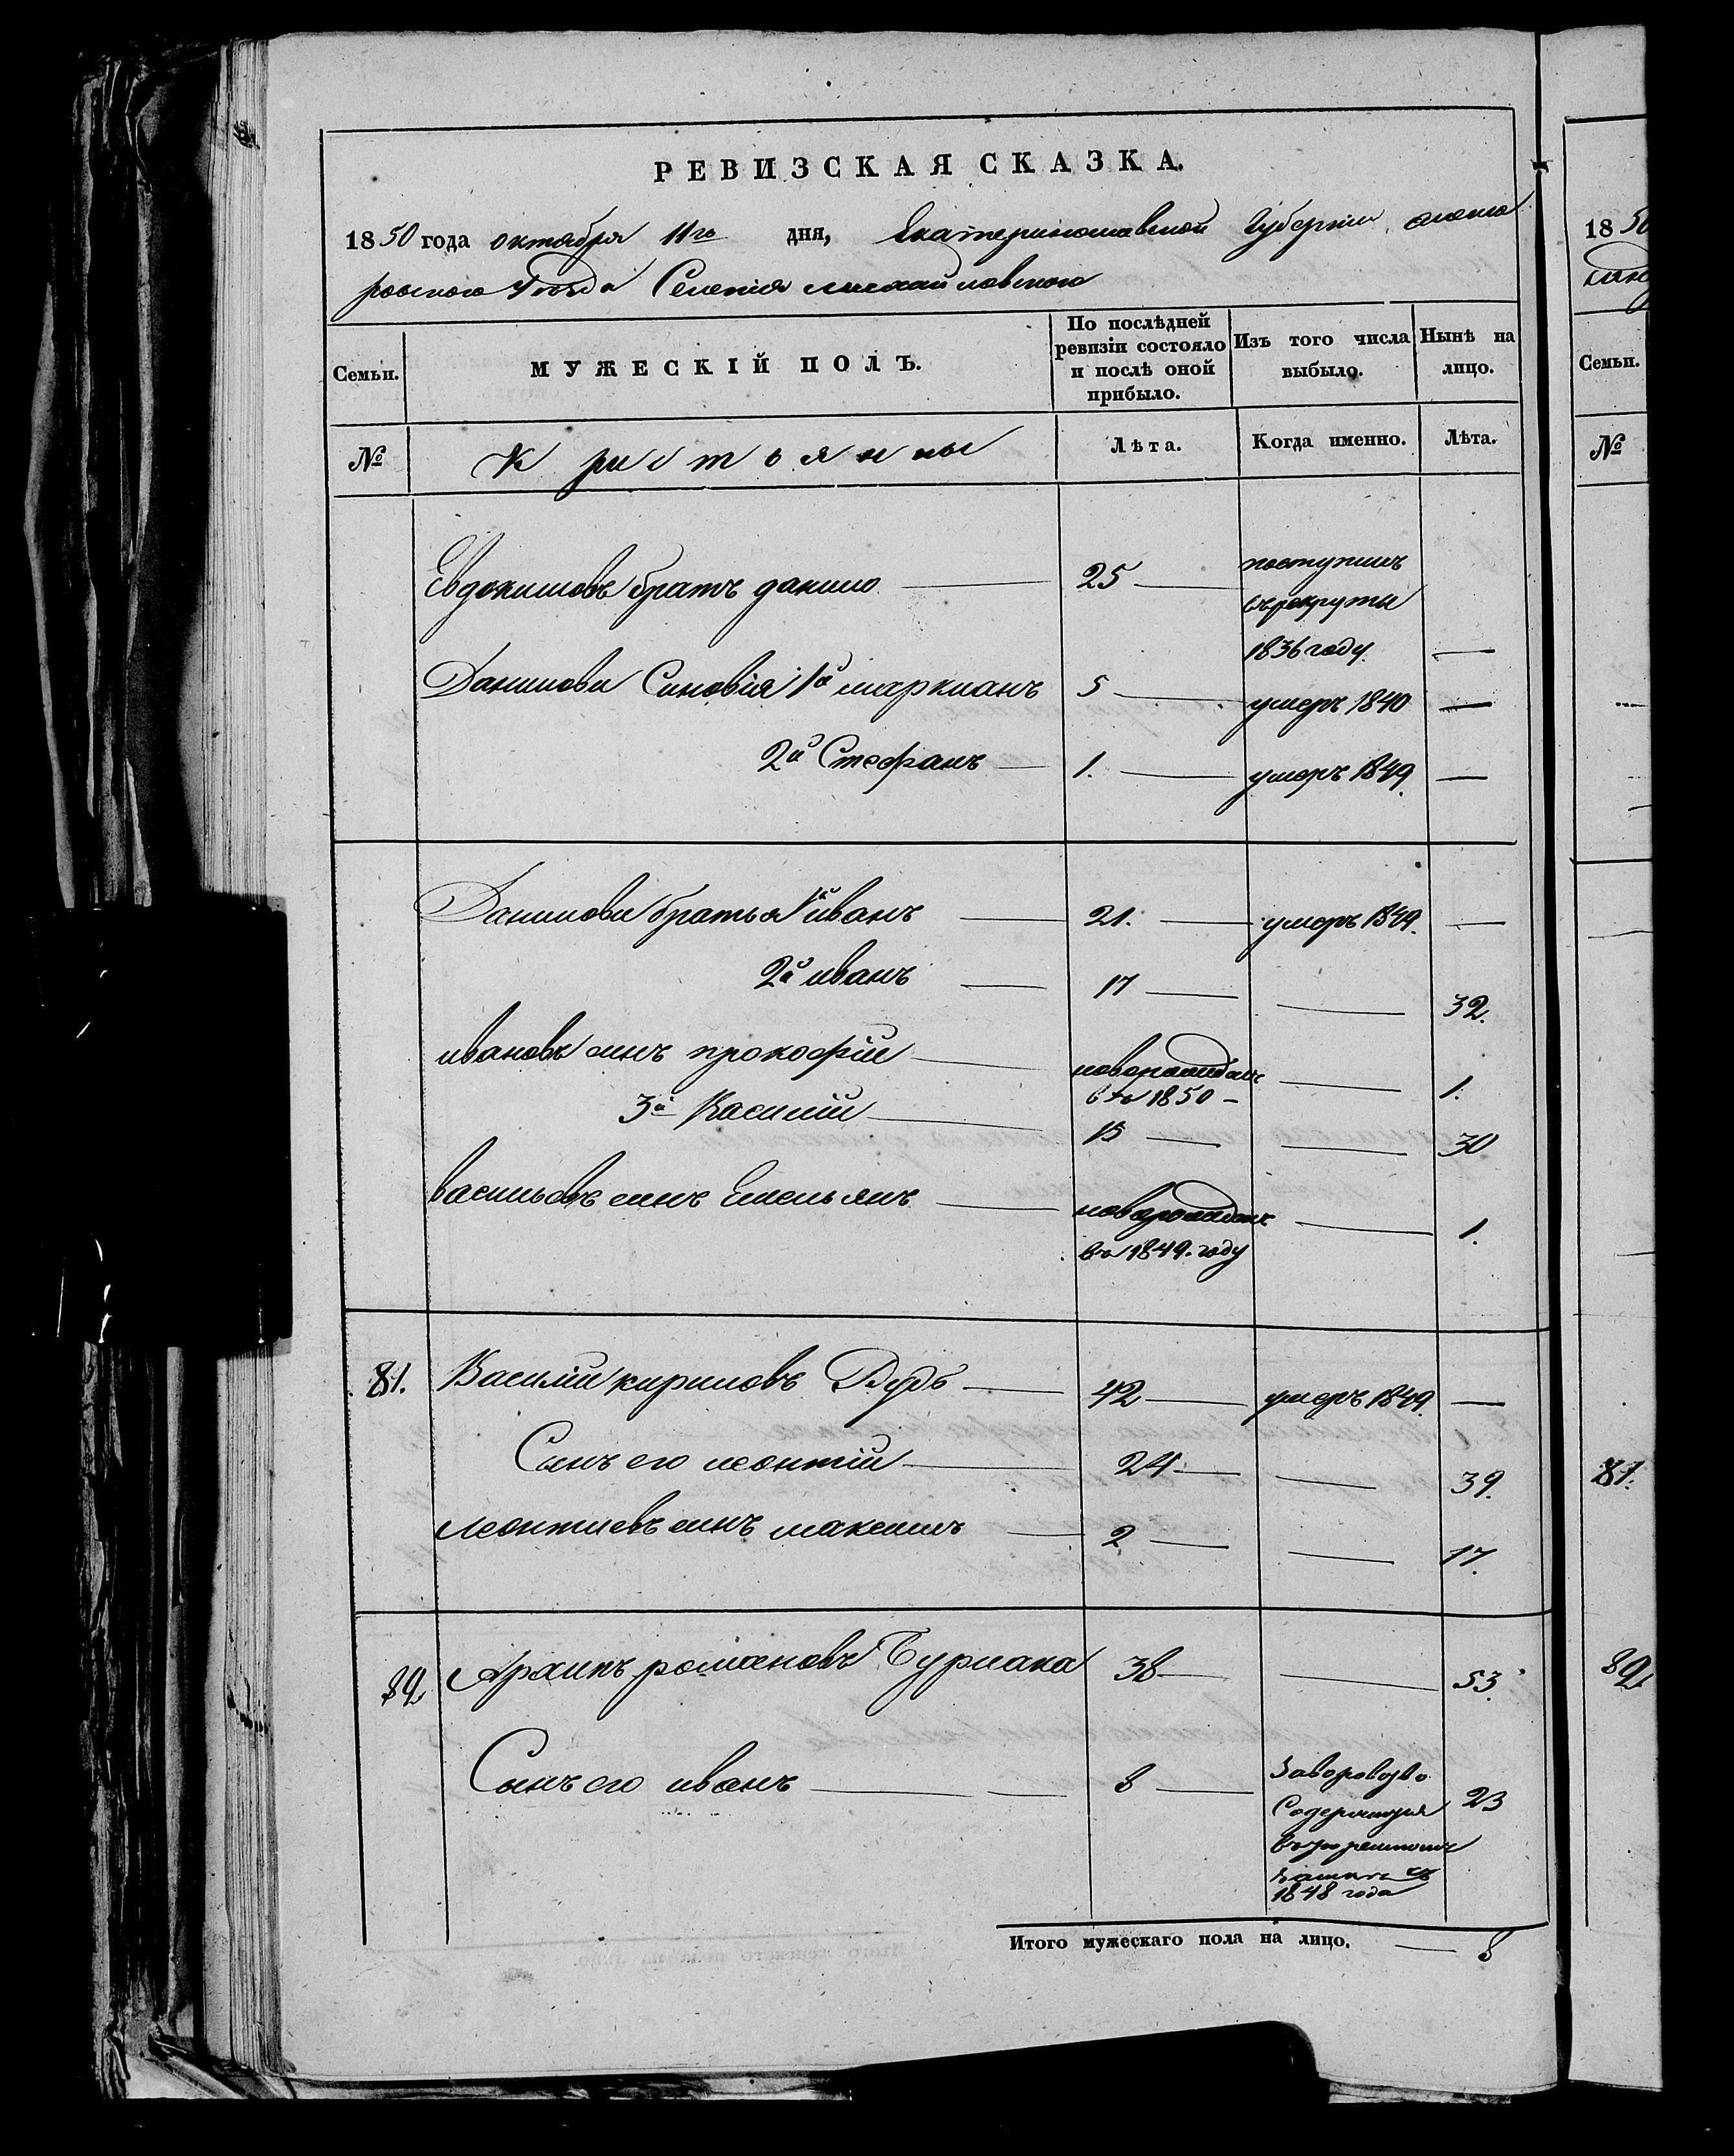 РЕВИЗСКАЯ СКАЗКА.
1850 года октября 11го дня, Екатеринославской Губернии, алекса
ровского Уезда Селения михайловского
Семьи.
МУЖЕСКІЙ ПОЛЪ.
По послѣдней
ревизіи состояло
и послѣ оной
прибыло.
Изъ того числа
выбыло.
Нынѣ на
лицо.
№
Крестьяны
Лѣта.
Когда именно.
Лѣта.
Евдокимовъ братъ данило 25 поступилъ
въ рекруты
1836 году. —
Данилови Синовія 1й маркианъ 5 умеръ 1840 —
2й Стефанъ 1. умеръ 1849. —
Данилови братья 1й иванъ 21. умеръ 1849. —
2й иванъ 17 — 32.
ивановъ синъ прокофій новорожденъ — 1.
въ 1850 –
3й Василій 15 — 30
васильевъ синъ Емельянъ новорожденъ — 1.
въ 1849. году
81. Василій кириловъ Дудъ 42 умеръ 1849. —
Сынъ его леонтій 24 — 39.
леонтиевъ синъ максимъ 2 — 17.
82 Архипъ романовъ Бурлака 38 — 53.
Сынъ его иванъ 8 За воровство 23
Содержится
1848 года
Итого мужескаго пола на лицо. — 8
1850
Семьи.
№
81.
82